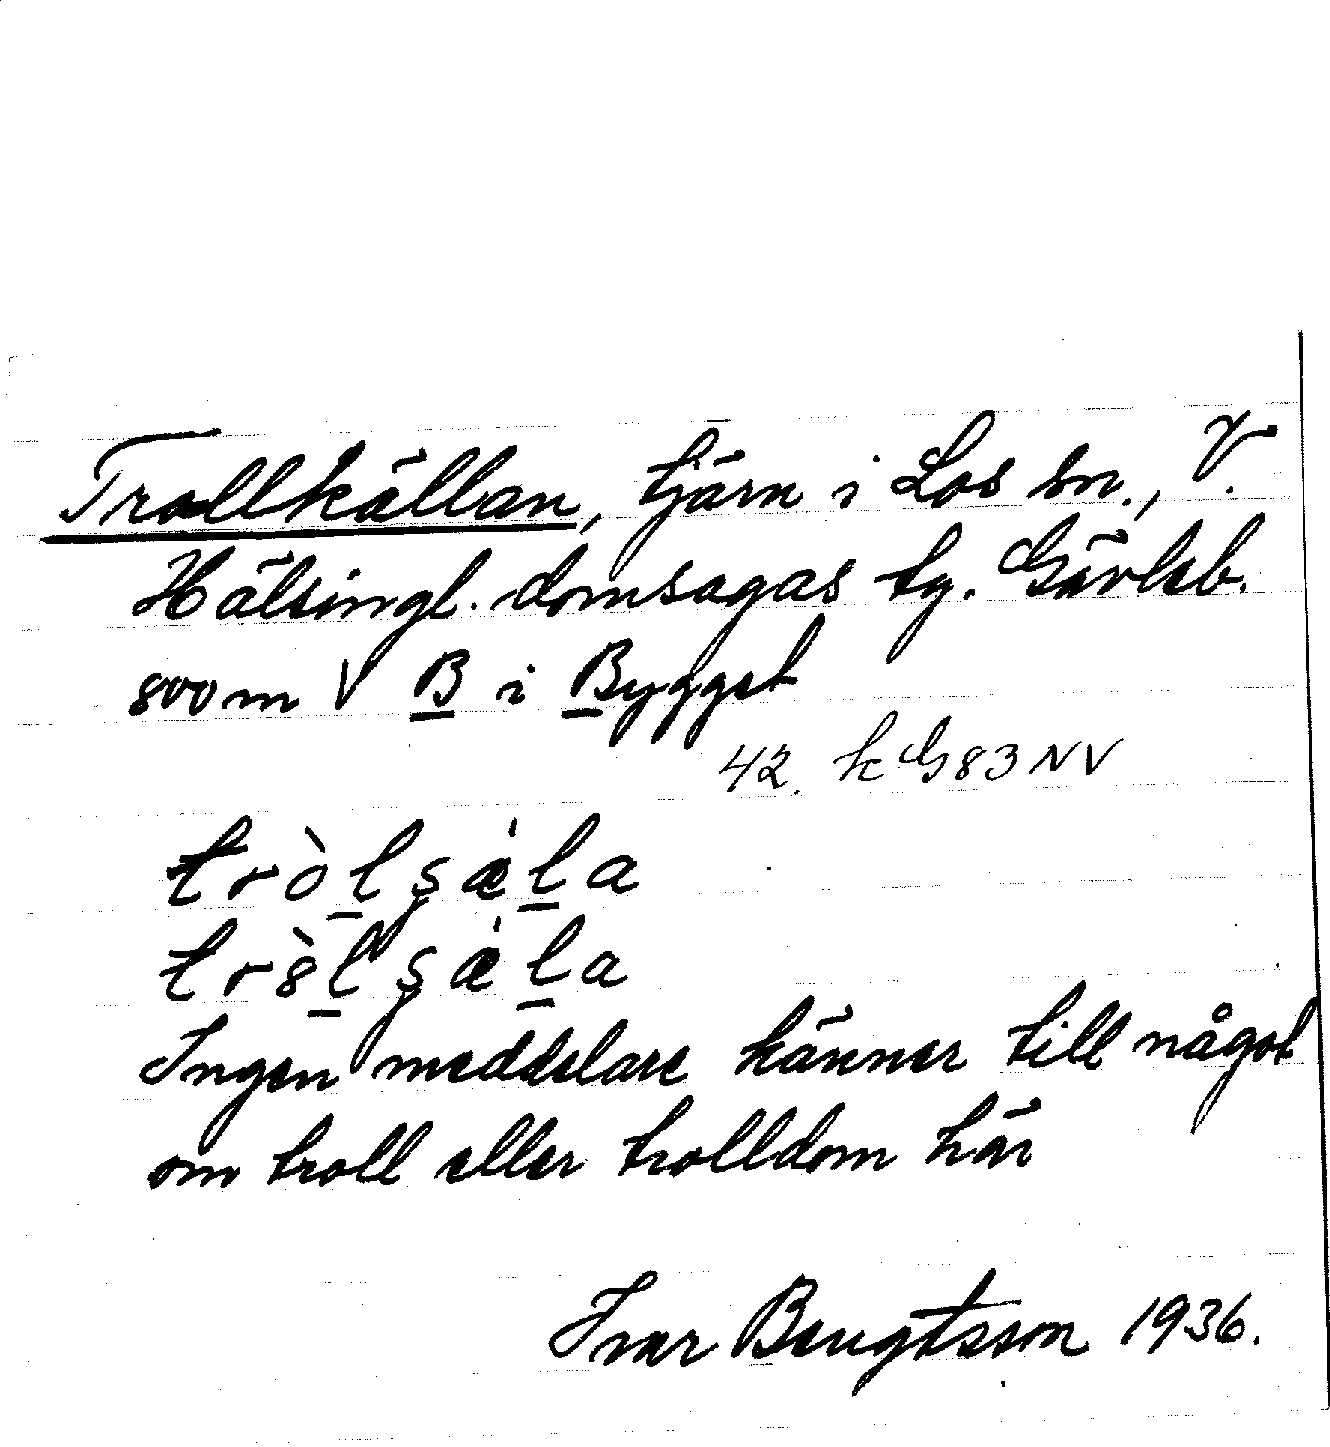 Trollkällan, tjärn i Los sn., V.
Hälsingl. domsagas tg. Gävleb.
800 m V B i Bygget
42. kG83NV
tròlʂæ̀la
trȣ̀lʂæ̀la
Ingen meddelare känner till något
om troll eller trolldom här
Ivar Bengtsson 1936.